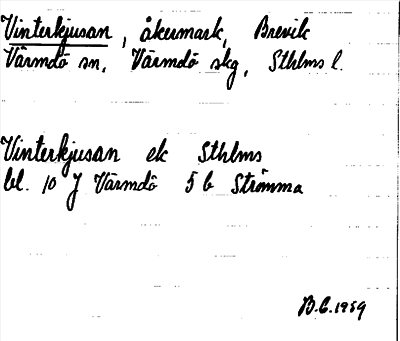 Vinterkjusan, åkermark, Brevik
Värmdö sn, Värmdö skg, Sthlms l.
Vinterkjusan ek Sthlms
bl. 10 J Värmdö 5 b Strömma
B.C. 1959